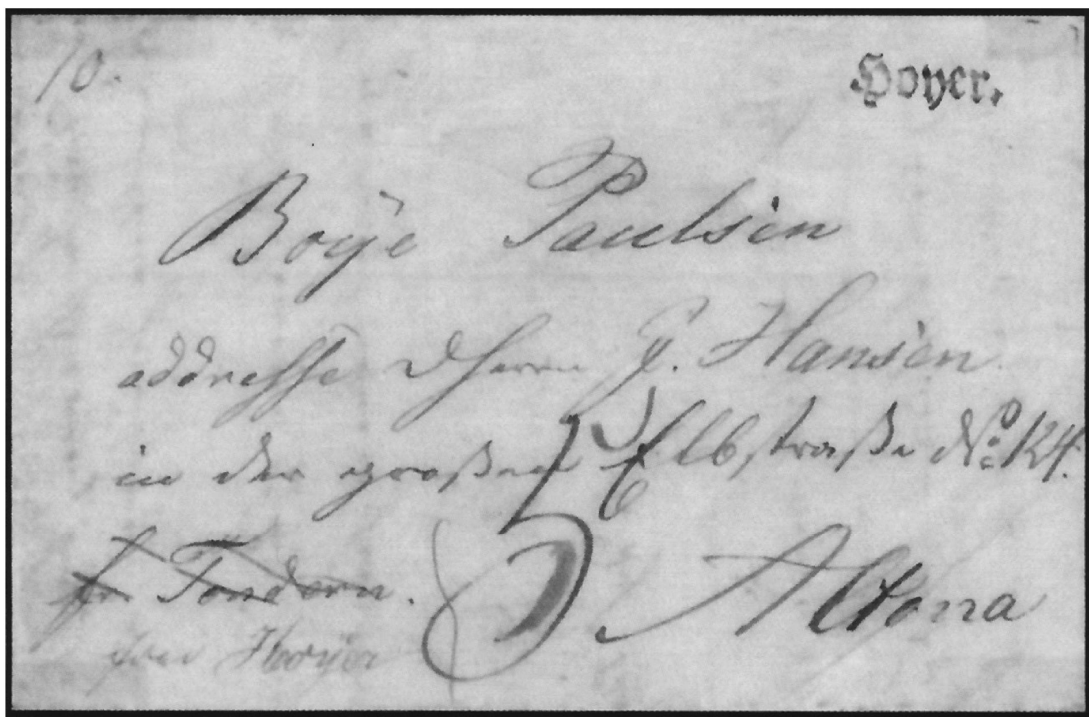 10.
Hoyer.
Boÿe Paulsen
addresse Herrn J. Hansen
in der großen Elbstraße No. 124.
5
fr Tondern.
Altona
Hoyer